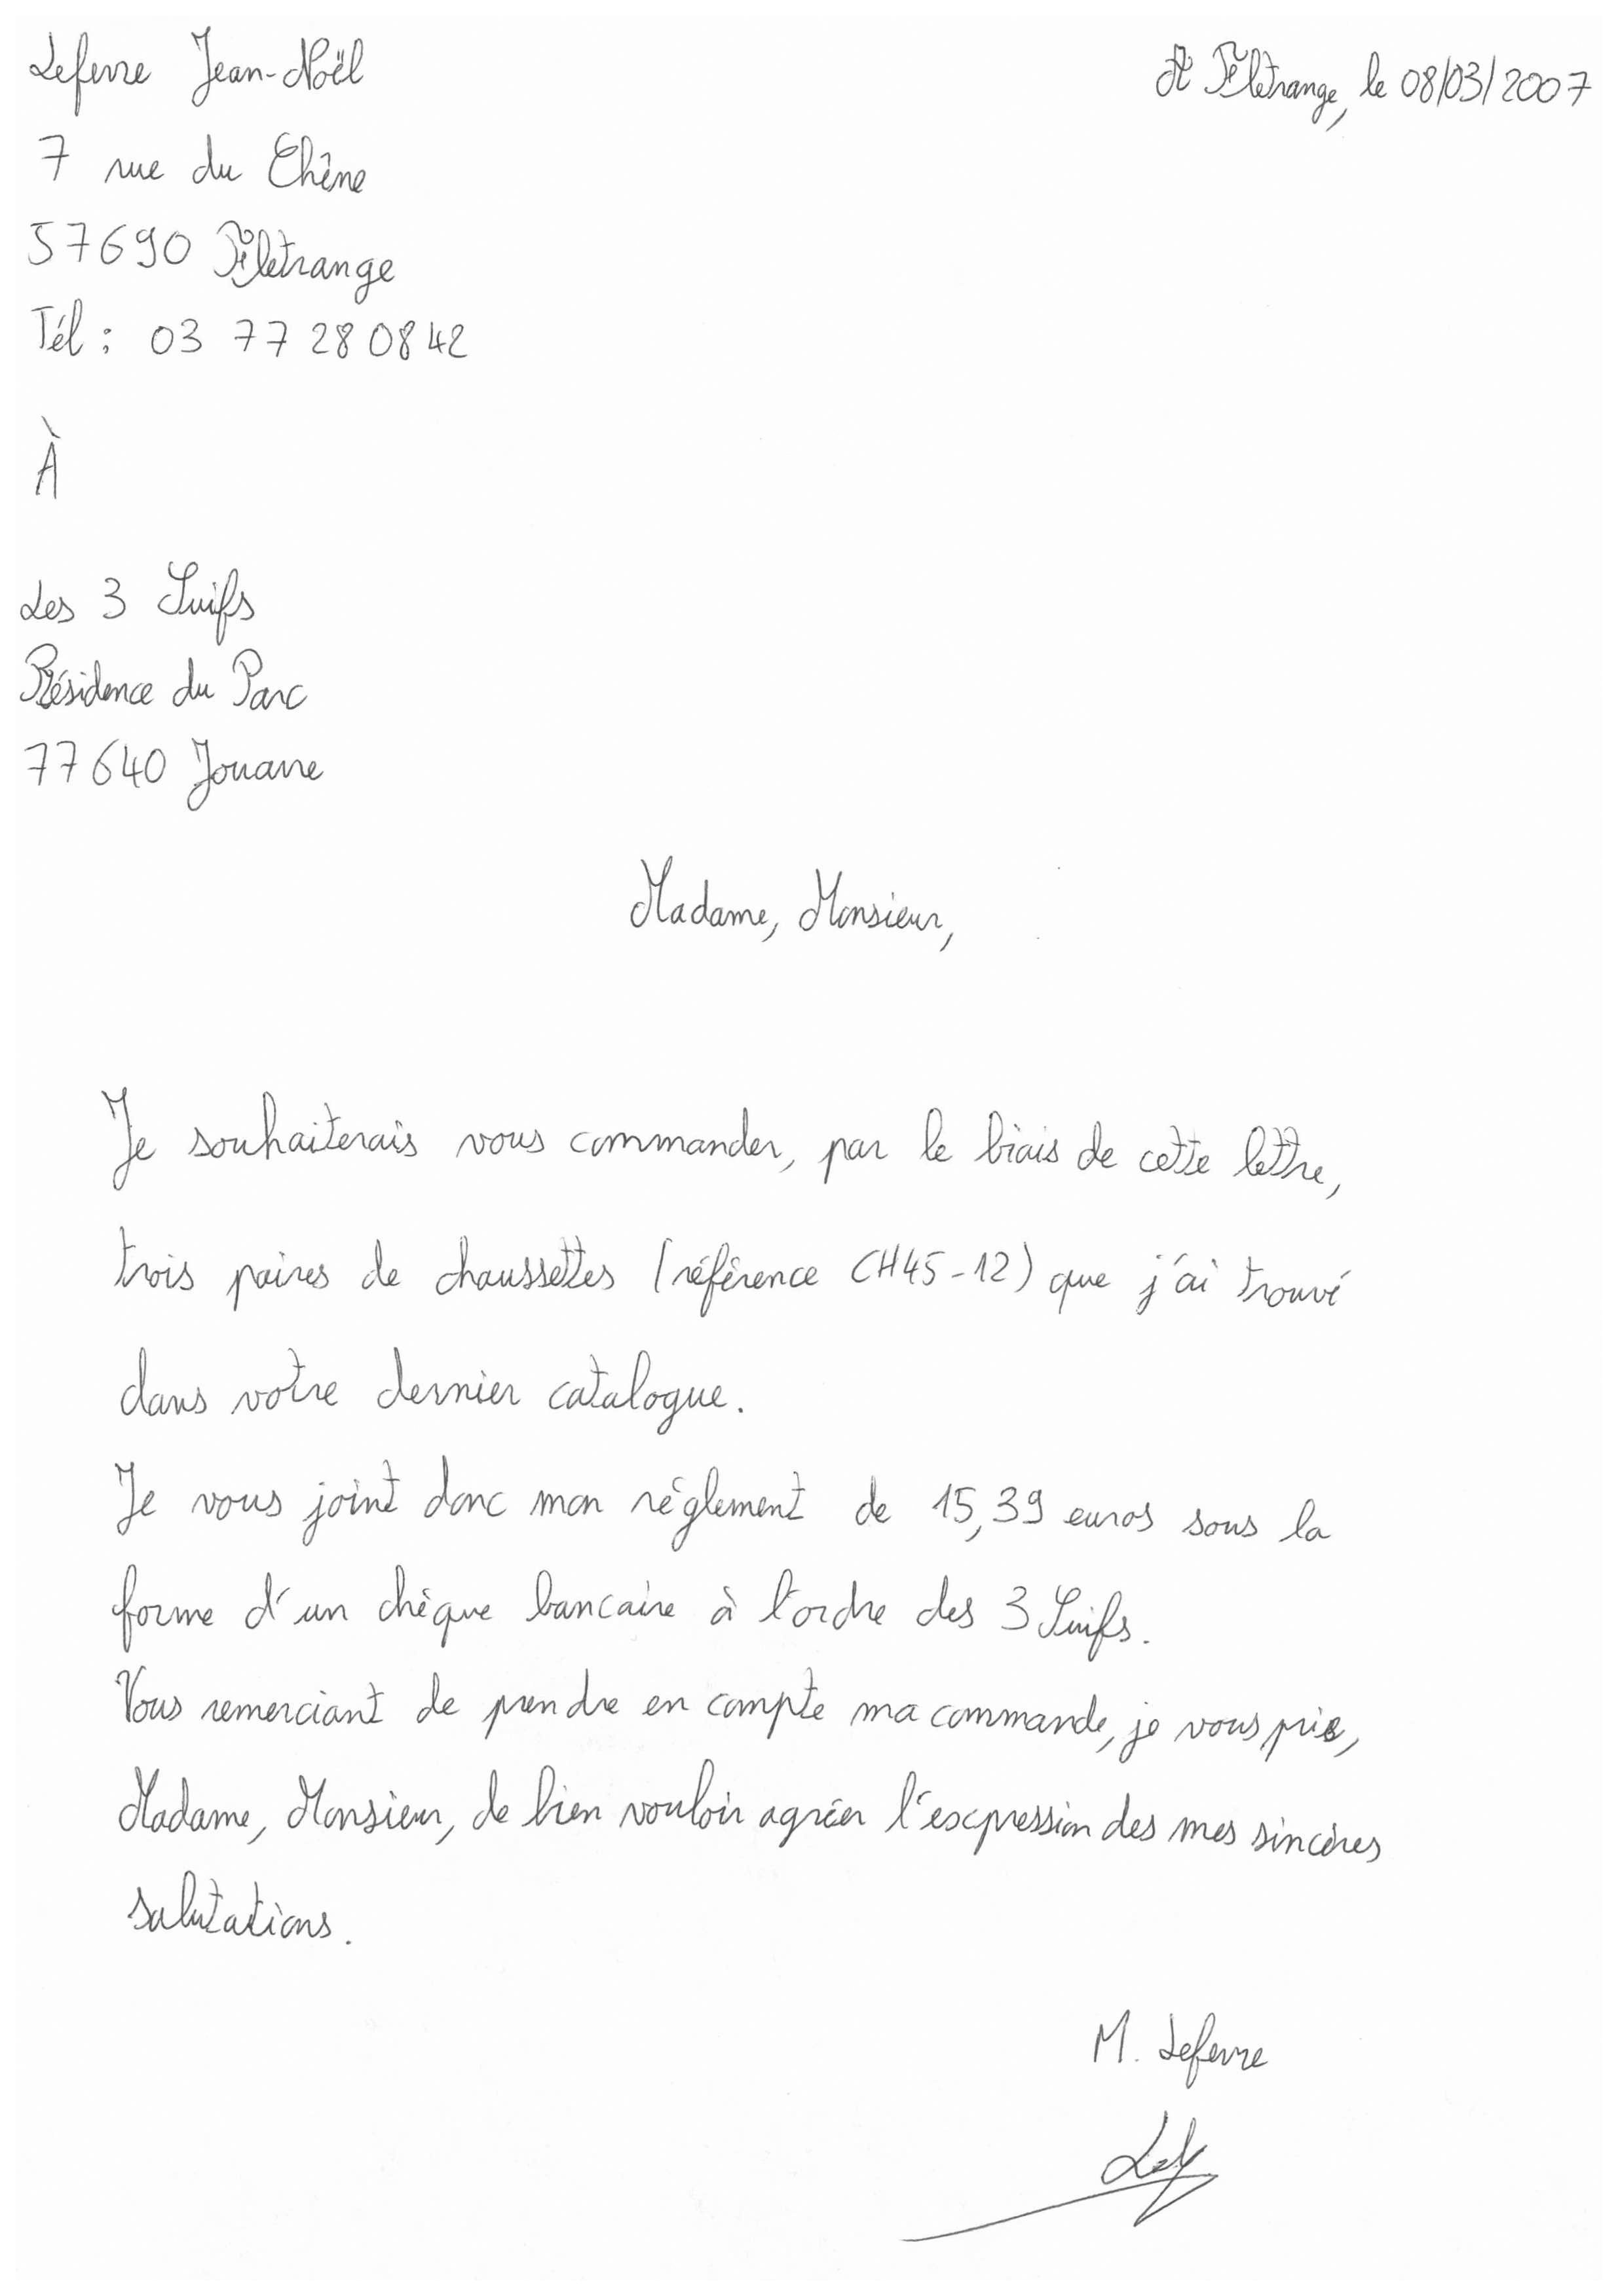 Lefevre Jean-Noël
À Filetrange, le 08/03/2007
7 rue du Chêne
57690 Filetrange
Tél : 03 77 28 08 42
À
Les 3 Suifs
Résidence du Parc
77640 Jouarre
Madame, Monsieur,
Je souhaiterais vous commander, par le biais de cette lettre,
trois paires de chaussettes (référence CH45-12) que j'ai trouvé
dans votre dernier catalogue.
Je vous joint donc mon réglement de 15,39 euros sous la
forme d'un chèque bancaire à l'ordre des 3 Suifs.
Vous remerciant de prendre en compte ma commande, je vous prie,
Madame, Monsieur, de bien vouloir agréer l'expression des mes sincères
salutations.
M. Lefevre